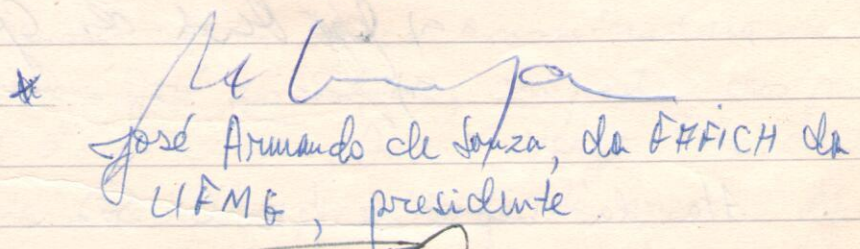 José Armando de Souza, da FAFICH da
UFMG, presidente